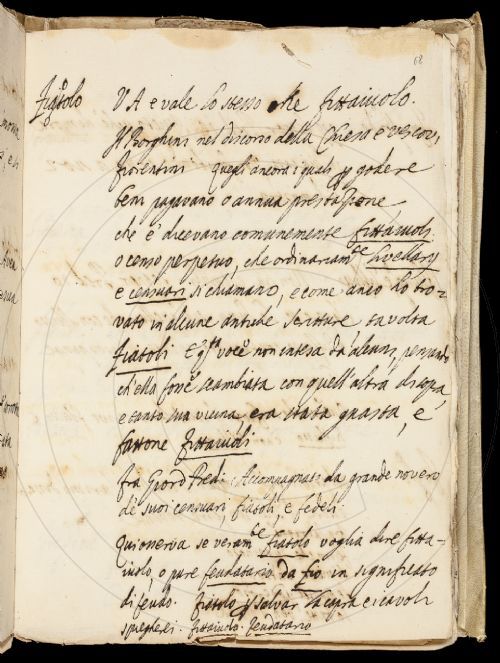 68
Fiatolo
VA e vale lo stesso che fittaiuolo.
Il Borghini nel discorso della Chiesa e vescovi
Fiorentini quegli ancora i quali p godere
beni pagavano o annua prestazione
che e' dicevano comunemente fittaiuoli
o censo perpetuo, che ordinariam.te livellarj
e censuari si chiamano, e come anco lo tro-
vato in alcune antiche scritture, ta volta
fiatoli E q.sta voce non intesa da alcuni, pensando
ch'ella fosse scambiata con quell'altra di sopra,
e tanto sua vicina era stata guasta, e
fattone fittaiuoli
fra Giord Pred: Accompagnat: da grande novero
de' suoi censuari, fiatoli, e fedeli.
Qui onerva se veram.te fiatolo voglia dire fitta-
iuolo, o pure feudatario da fio in significato
di feudo. fiatolo p salvar la capra e i cavoli
spiegherei. fittaiuolo. feudatario